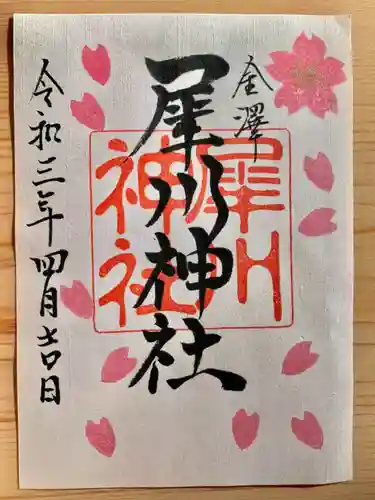 金澤
犀川神社
犀川
神社
令和三年四月吉日